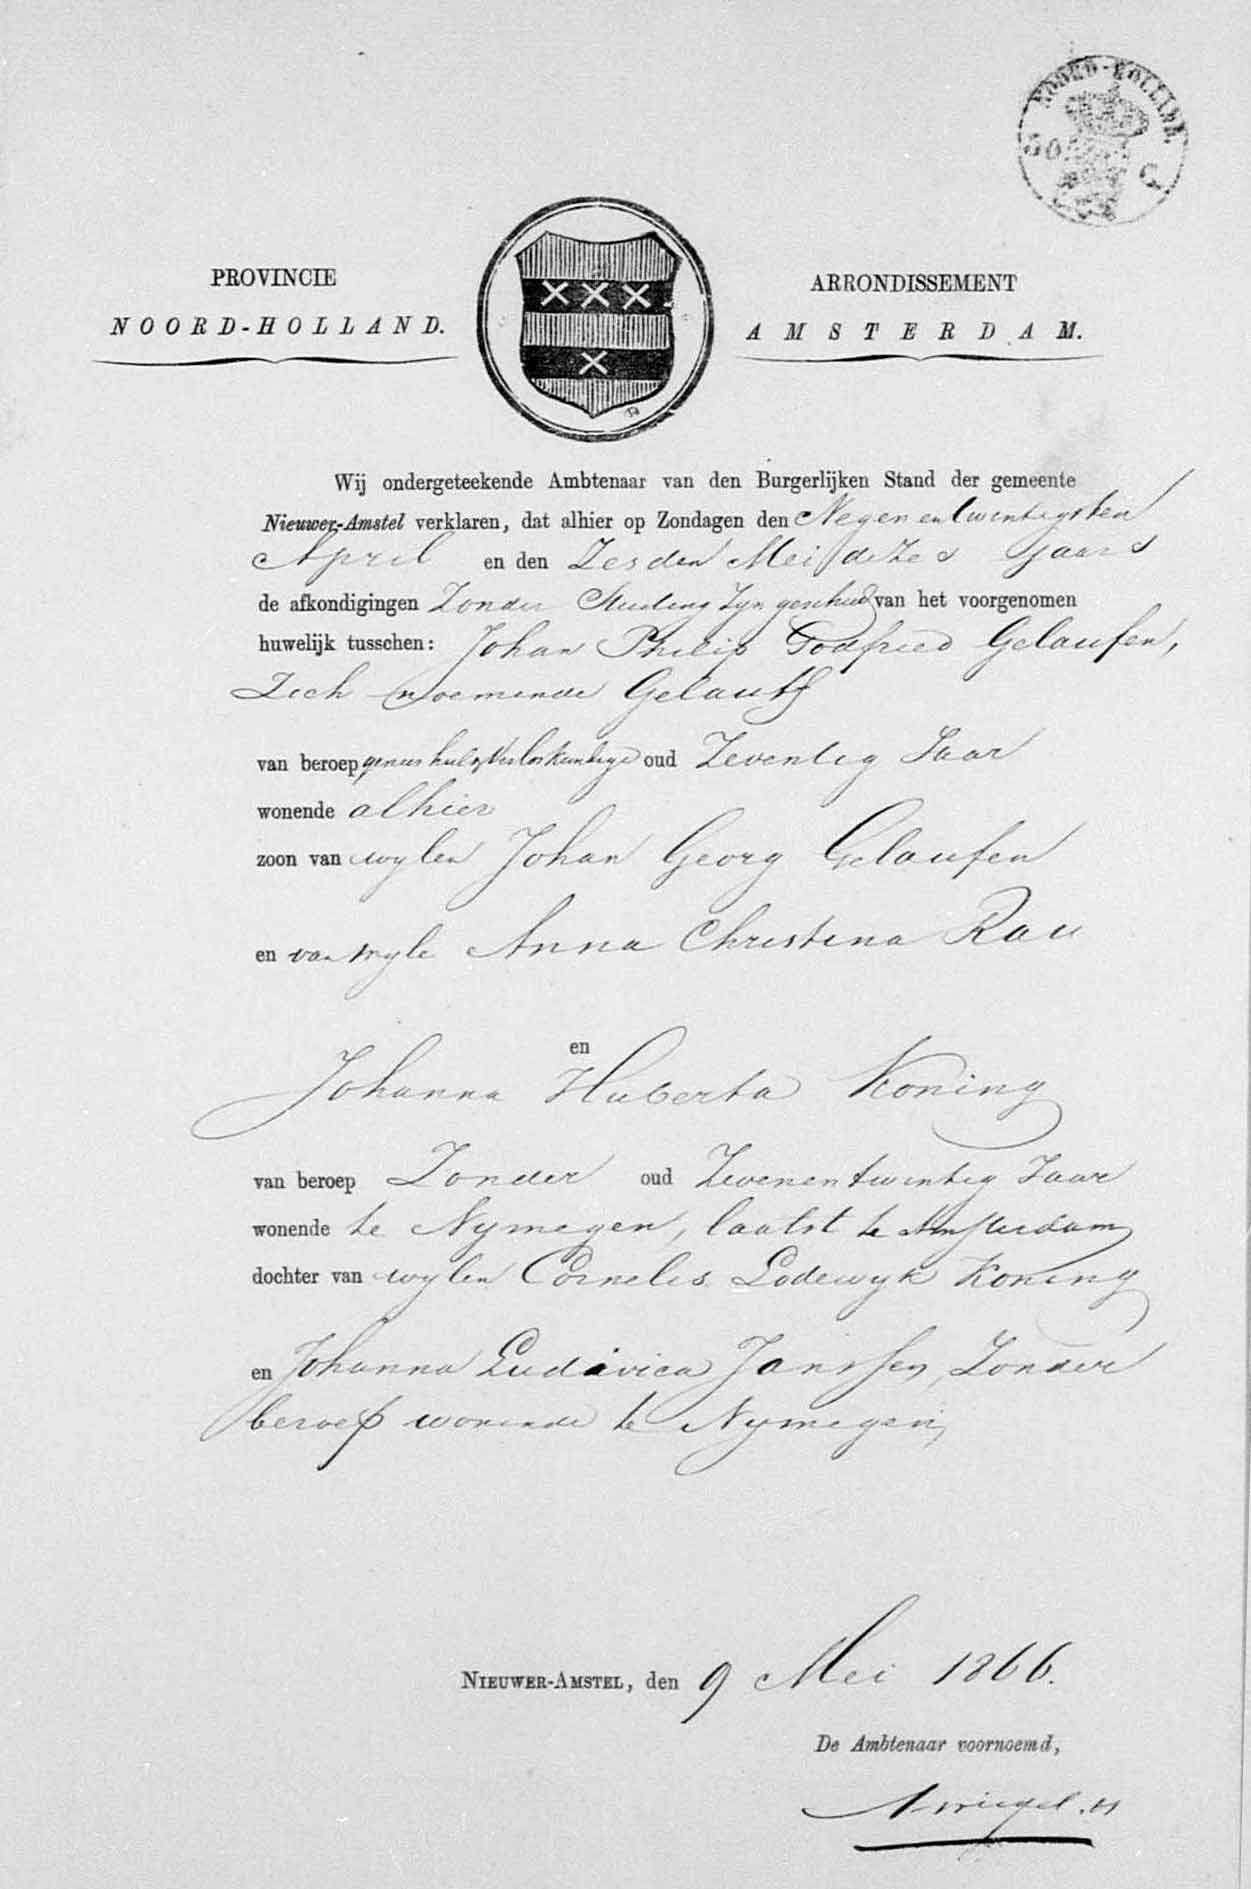 NOORD-HOLLAND.
50 C
PROVINCIE
NOORD-HOLLAND.
ARRONDISSEMENT
AMSTERDAM.
Wij ondergeteekende Ambtenaar van den Burgerlijken Stand der gemeente
Nieuwer-Amstel verklaren, dat alhier op Zondagen den Negen en twintigsten
April en den Zesden Mei dezes Jaars
de afkondigingen Zonder Stuiting Zyn geschied van het voorgenomen
huwelijk tusschen: Johan Philip Godfried Gelaufen,
Zich noemende Gelauff
van beroep oud Zeventig Jaar
wonende alhier
zoon van wylen Johan Georg Gelaufen
en van wyle Anna Christina Rau
en
Johanna Huberta Koning
van beroep Zonder oud Zevenentwintig Jaar
wonende te Nymegen, laatst te Amsterdam
dochter van wylen Cornelis Lodewyk Koning
en Johanna Ludivica Janssen, Zonder
beroep wonende te Nymegen,
NIEUWER-AMSTEL, den 9 Mei 1866.
De Ambtenaar voornoemd,